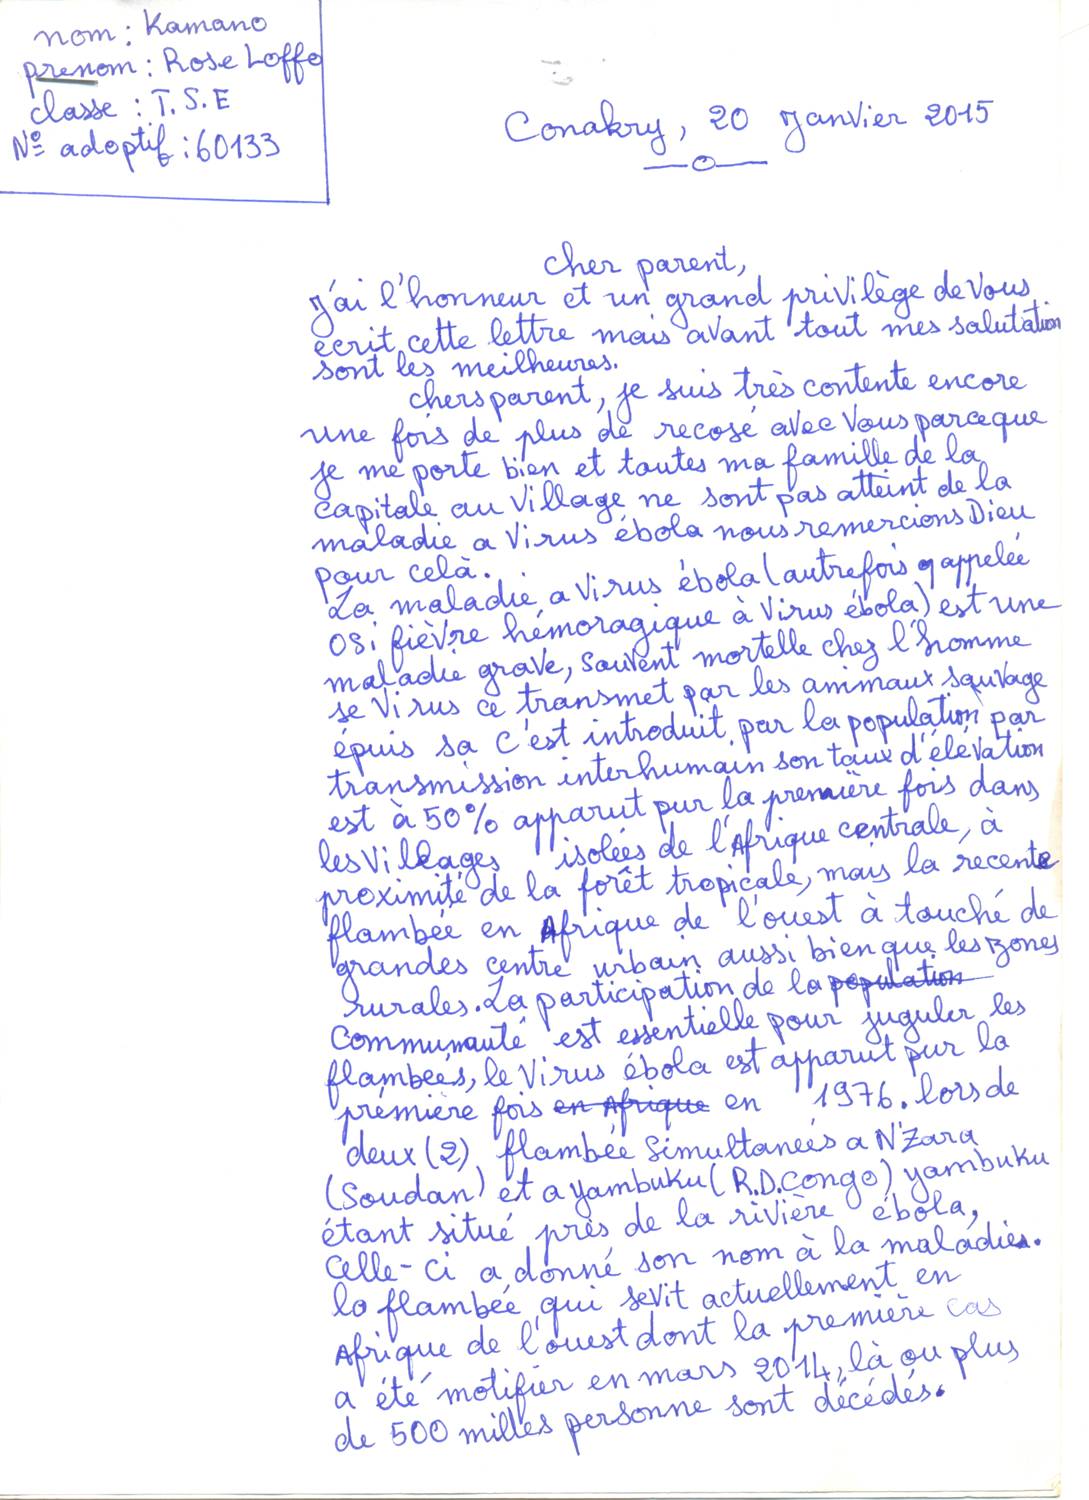 nom : Kamano
prenom : Rose Loffo
classe : T.S.E
Nº adoptif : 60133
Conakry, 20 Janvier 2015
cher parent,
J'ai l'honneur et un grand privilège de vous
écrit cette lettre mais avant tout mes salutation
sont les meilheures.
chers parent, je suis très contente encore
une fois de plus de recosé avec vous parceque
je me porte bien et toutes ma famille de la
capitale au village ne sont pas atteint de la
maladie a virus ébola nous remercions Dieu
pour celà.
La maladie a virus ébola (autrefois appelée
osi fièvre hémoragique à virus ébola) est une
maladie grave, souvent mortelle chez l'homme
se virus ce transmet par les animaux sauvage
épuis sa c'est introduit par la population par
transmission interhumain son taux d'élévation
est à 50% apparut pur la première fois dans
les villages isolées de l'Afrique centrale, à
proximité de la forêt tropicale, mais la récente
flambée en Afrique de l'ouest à touché de
grandes centre urbain aussi bien que les zones
rurales. La participation de la population
Communauté est essentielle pour juguler les
flambées, le virus ébola est apparut pur la
première fois en Afrique en 1976. lors de
deux (2) flambée Simultaneés a N'Zara
(Soudan) et a yambuku (R.D.Congo) yambuku
étant situé près de la rivière ébola,
Celle-ci a donné son nom à la maladie.
la flambée qui sevit actuellement en
Afrique de l'ouest dont la première cas
a été motifier en mars 2014, là ou plus
de 500 milles personne sont décédés.